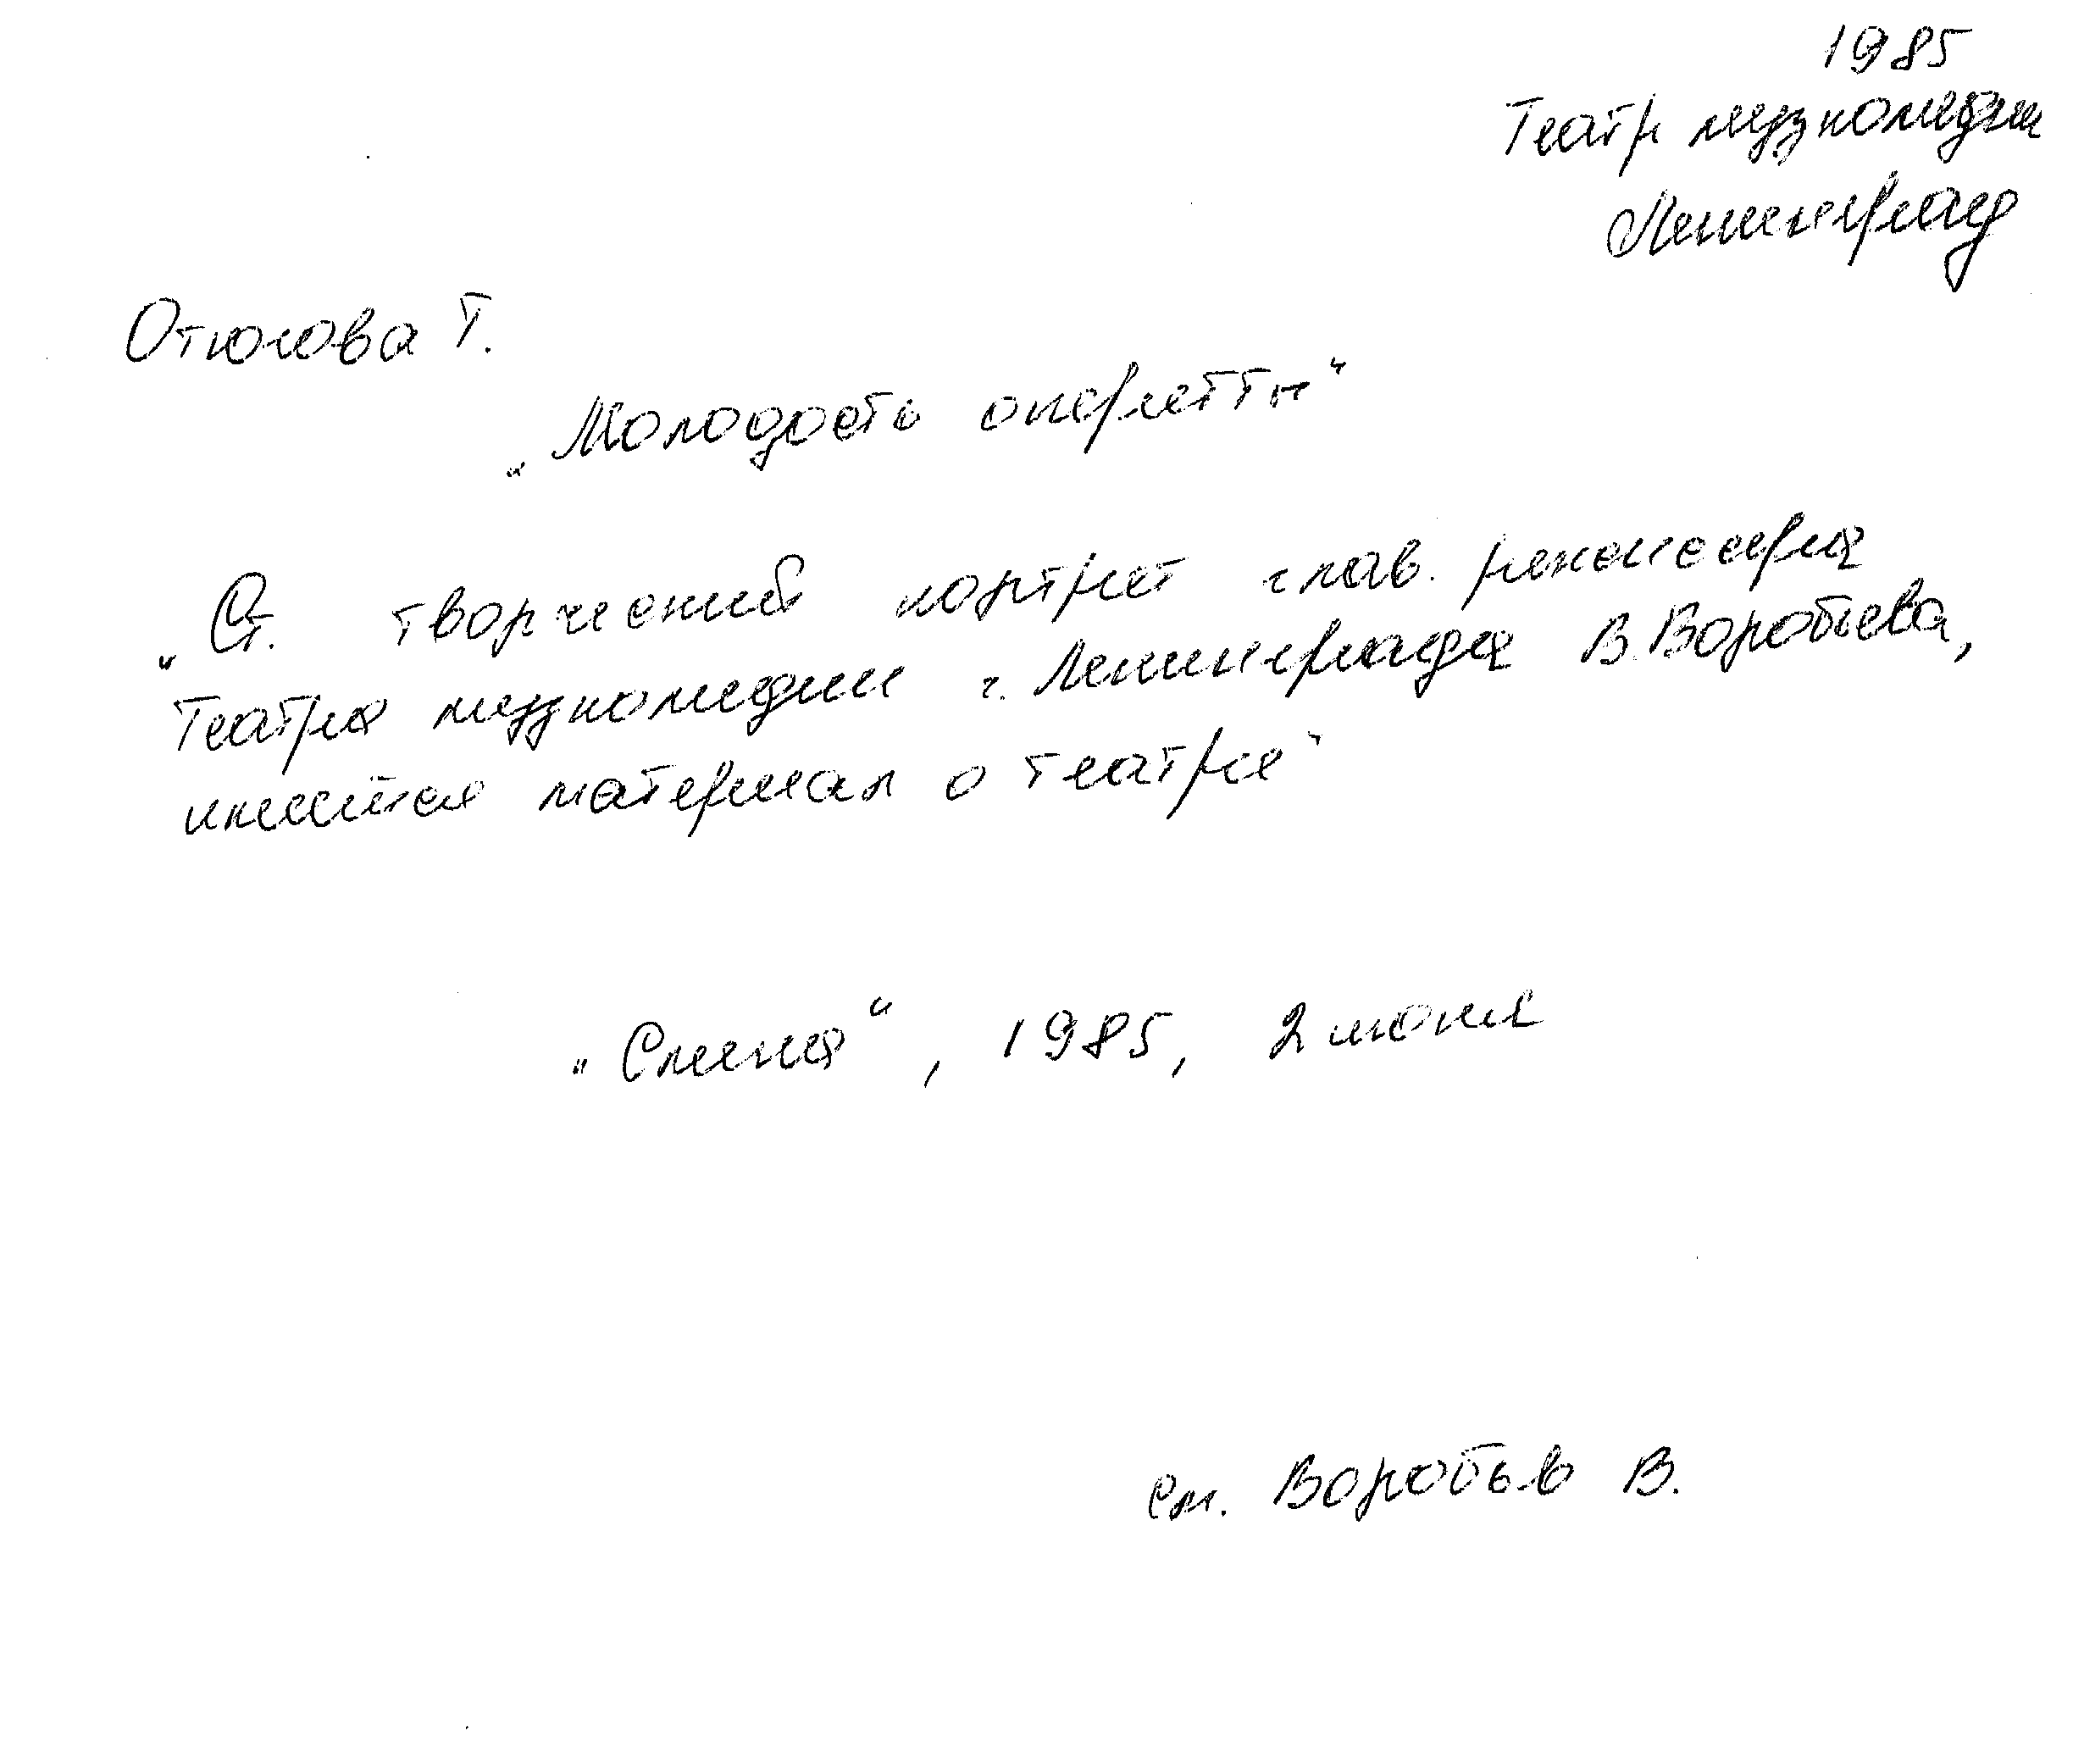 1985
Театр музкомедии
Ленинград
Отюгова Т.
„Молодость оперетты“
„Ст. творческий портрет глав. режиссера
Театра музкомедии г. Ленинграда В. Воробьева,
имеется материал о театре“
„Смена“, 1985, 2 июня
см. Воробьев В.